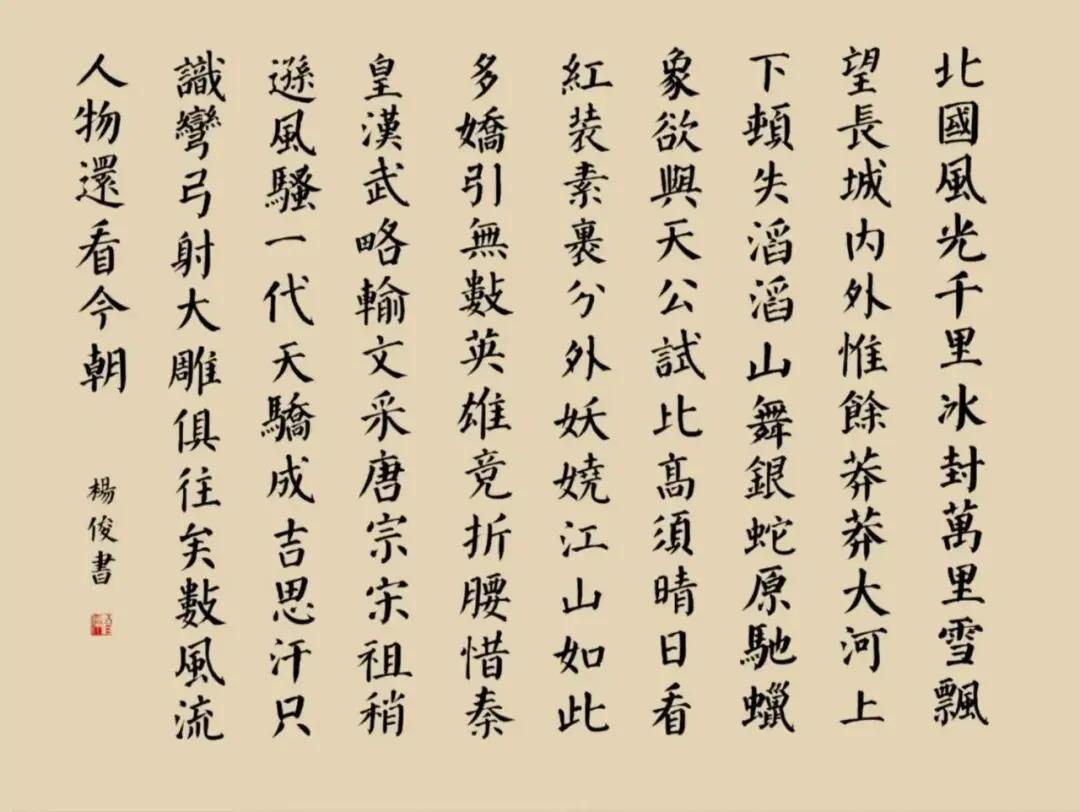 北國風光千里冰封萬里雪飄
望長城内外惟餘莽莽大河上
下頓失滔滔山舞銀蛇原馳蠟
象欲與天公試比高須晴日看
紅装素裹分外妖嬈江山如此
多嬌引無數英雄竟折腰惜秦
皇漢武略輸文采唐宗宋祖稍
遜風騷一代天驕成吉思汗只
識彎弓射大雕俱往矣數風流
人物還看今朝
楊俊書